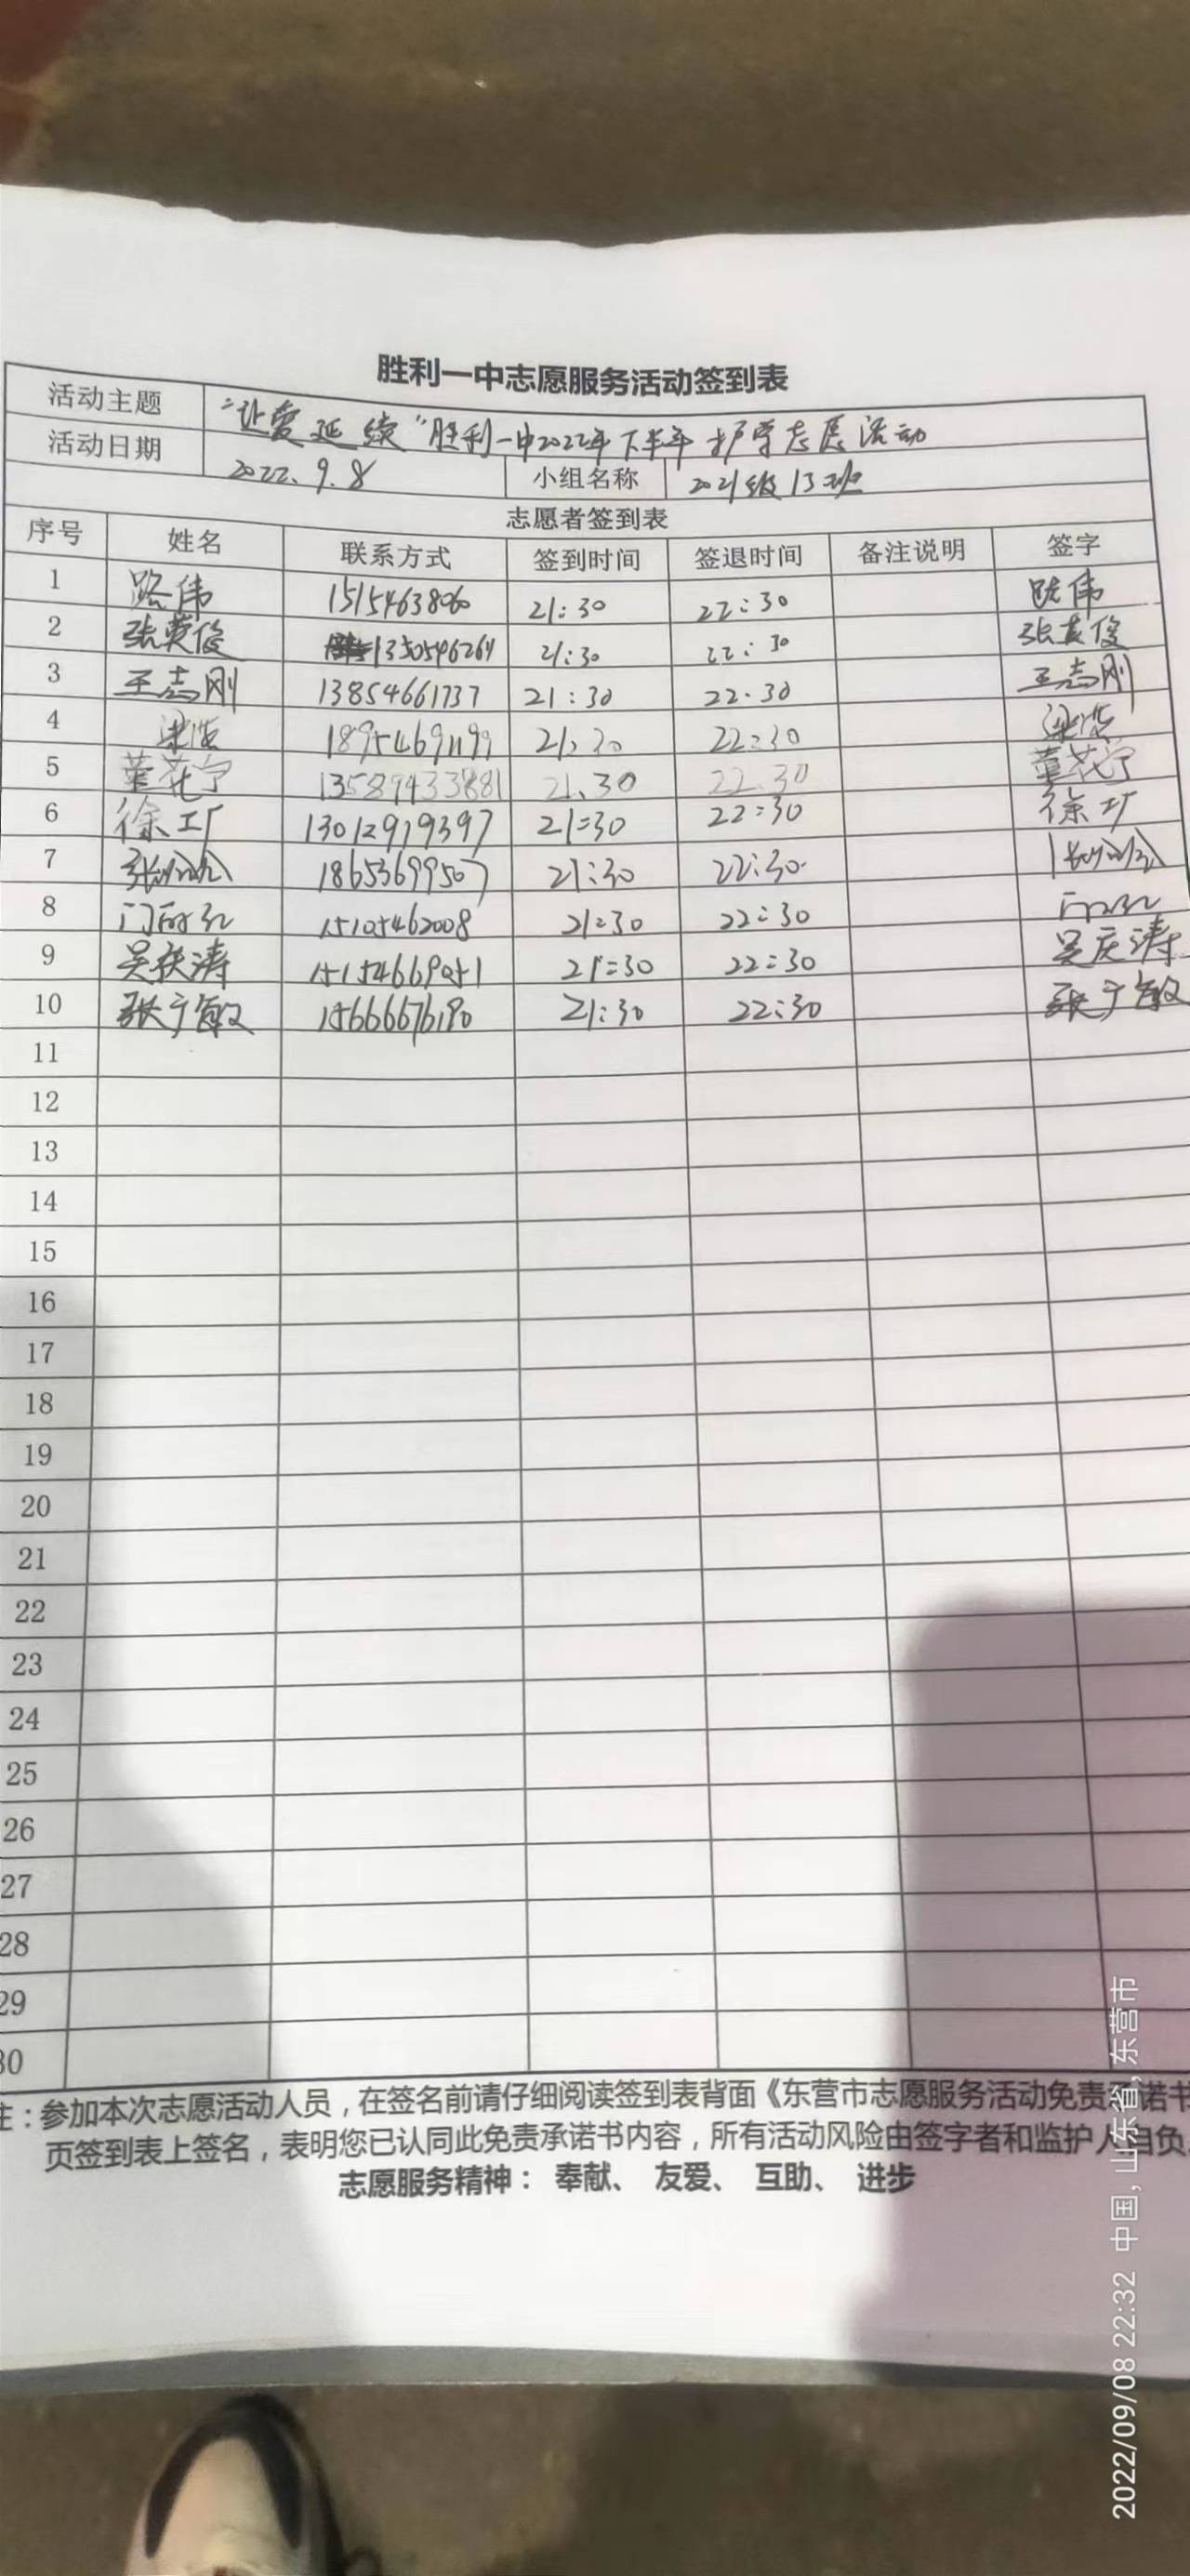 胜利一中志愿服务活动签到表
活动主题 "让爱延续"胜利一中2022年下半年护学志愿活动
活动日期 2022.9.8 小组名称 2021级13班
志愿者签到表
序号 姓名 联系方式 签到时间 签退时间 备注说明 签字
1 路伟 15154638060 21:30 22:30 路伟
2 张英俊 21:30 22:30 张英俊
3 王志刚 13854661737 21:30 22.30 王志刚
4 梁浩 18954691199 21:30 22:30 梁浩
5 董花宁 13589433881 21.30 22.30 董花宁
6 徐工厂 13012919397 21:30 22:30 徐工厂
7 18653699507 21:30 22:30
8 15105462008 21:30 22:30
9 吴庆涛 15154669051 21:30 22:30 吴庆涛
10 张宁敏 15666676190 21:30 22:30 张宁敏
11
12
13
14
15
16
17
18
19
20
21
22
23
24
25
26
27
28
29
30
注：参加本次志愿活动人员，在签名前请仔细阅读签到表背面《东营市志愿服务活动免责承诺书
页签到表上签名，表明您已认同此免责承诺书内容，所有活动风险由签字者和监护人自负
志愿服务精神： 奉献、 友爱、 互助、 进步
2022/09/08 22:32 中国，山东省，东营市